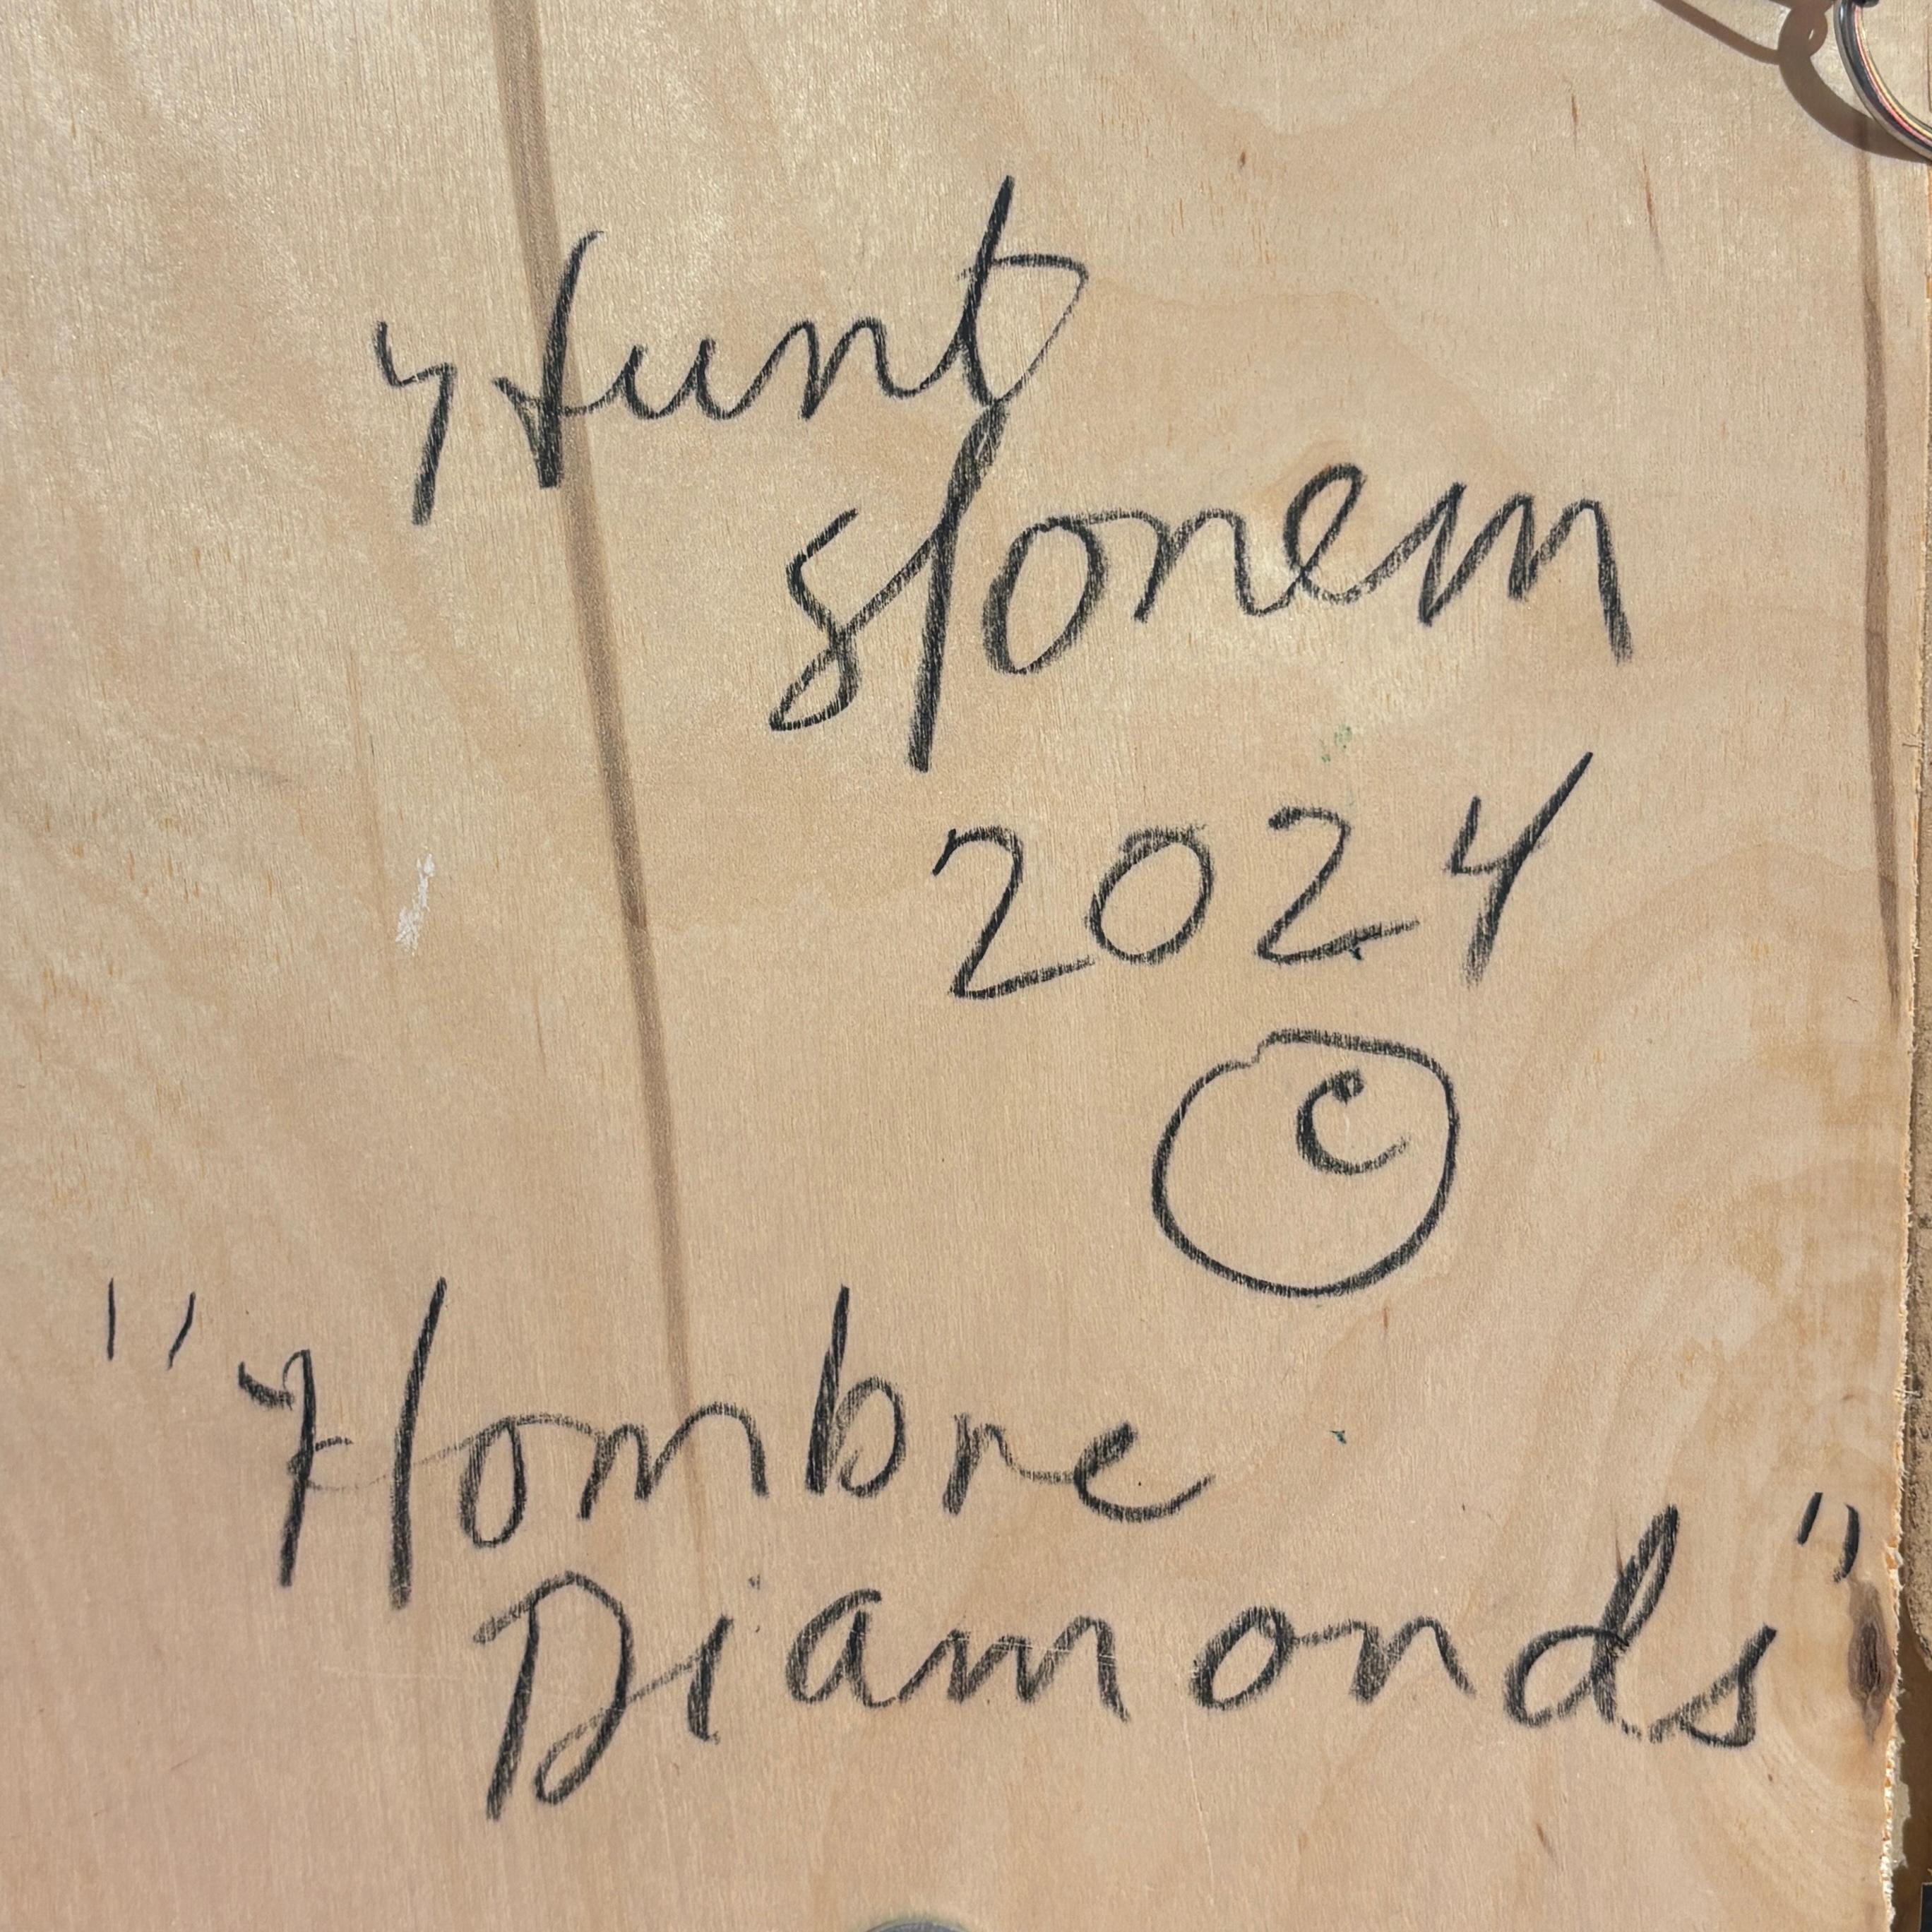 Hunt
Slonem
2024
©
"Hombre
Diamonds"